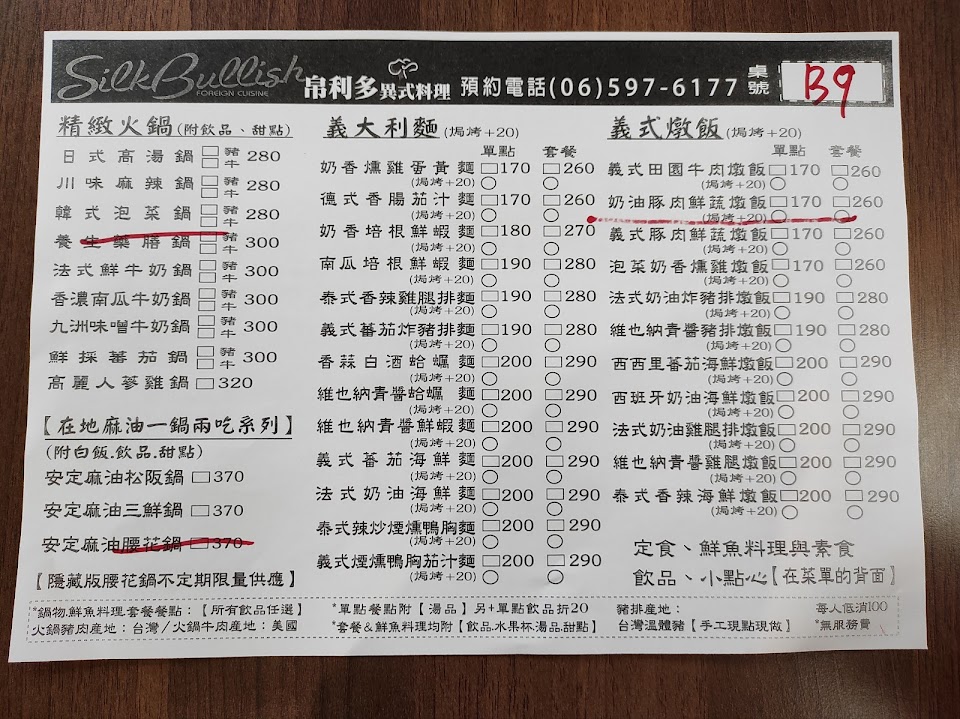 SilkBullish
FOREIGN CUISINE
帛利多異式料理 預約電話(06)597-6177 桌號 B9
精緻火鍋(附飲品、甜點)
日式高湯鍋 豬 牛 280
川味麻辣鍋 豬 牛 280
韓式泡菜鍋 豬 牛 280
養生藥膳鍋 豬 牛 300
法式鮮牛奶鍋 豬 牛 300
香濃南瓜牛奶鍋 豬 牛 300
九洲味噌牛奶鍋 豬 牛 300
鮮採蕃茄鍋 豬 牛 300
高麗人蔘雞鍋 320
【在地麻油一鍋兩吃系列】
(附白飯.飲品.甜點)
安定麻油松阪鍋 370
安定麻油三鮮鍋 370
安定麻油腰花鍋 370
【隱藏版腰花鍋不定期限量供應】
義大利麵(焗烤+20)
單點 套餐
奶香燻雞蛋黃麵 170 260
(焗烤+20)
德式香腸茄汁麵 170 260
(焗烤+20)
奶香培根鮮蝦麵 180 270
(焗烤+20)
南瓜培根鮮蝦麵 190 280
(焗烤+20)
泰式香辣雞腿排麵 190 280
(焗烤+20)
義式蕃茄炸豬排麵 190 280
(焗烤+20)
香蒜白酒蛤蠣麵 200 290
(焗烤+20)
維也納青醬蛤蠣麵 200 290
(焗烤+20)
維也納青醬鮮蝦麵 200 290
(焗烤+20)
義式蕃茄海鮮麵 200 290
(焗烤+20)
法式奶油海鮮麵 200 290
(焗烤+20)
泰式辣炒煙燻鴨胸麵 200 290
(焗烤+20)
義式煙燻鴨胸茄汁麵 200 290
(焗烤+20)
義式燉飯(焗烤+20)
單點 套餐
義式田園牛肉燉飯 170 260
(焗烤+20)
奶油豚肉鮮蔬燉飯 170 260
(焗烤+20)
義式豚肉鮮蔬燉飯 170 260
(焗烤+20)
泡菜奶香燻雞燉飯 170 260
(焗烤+20)
法式奶油炸豬排燉飯 190 280
(焗烤+20)
維也納青醬豬排燉飯 190 280
(焗烤+20)
西西里蕃茄海鮮燉飯 200 290
(焗烤+20)
西班牙奶油海鮮燉飯 200 290
(焗烤+20)
法式奶油雞腿燉飯 200 290
(焗烤+20)
維也納青醬雞腿燉飯 200 290
(焗烤+20)
泰式香辣海鮮燉飯 200 290
(焗烤+20)
定食、鮮魚料理與素食
飲品、小點心【在菜單的背面】
*鍋物.鮮魚料理套餐餐點：【所有飲品任選】
火鍋豬肉產地：台灣/火鍋牛肉產地：美國
*單點餐點附【湯品】另+單點飲品折20
*套餐&鮮魚料理均附【飲品.水果杯.湯品.甜點】
豬排產地：
台灣溫體豬【手工現點現做】
每人低消100
*無服務費